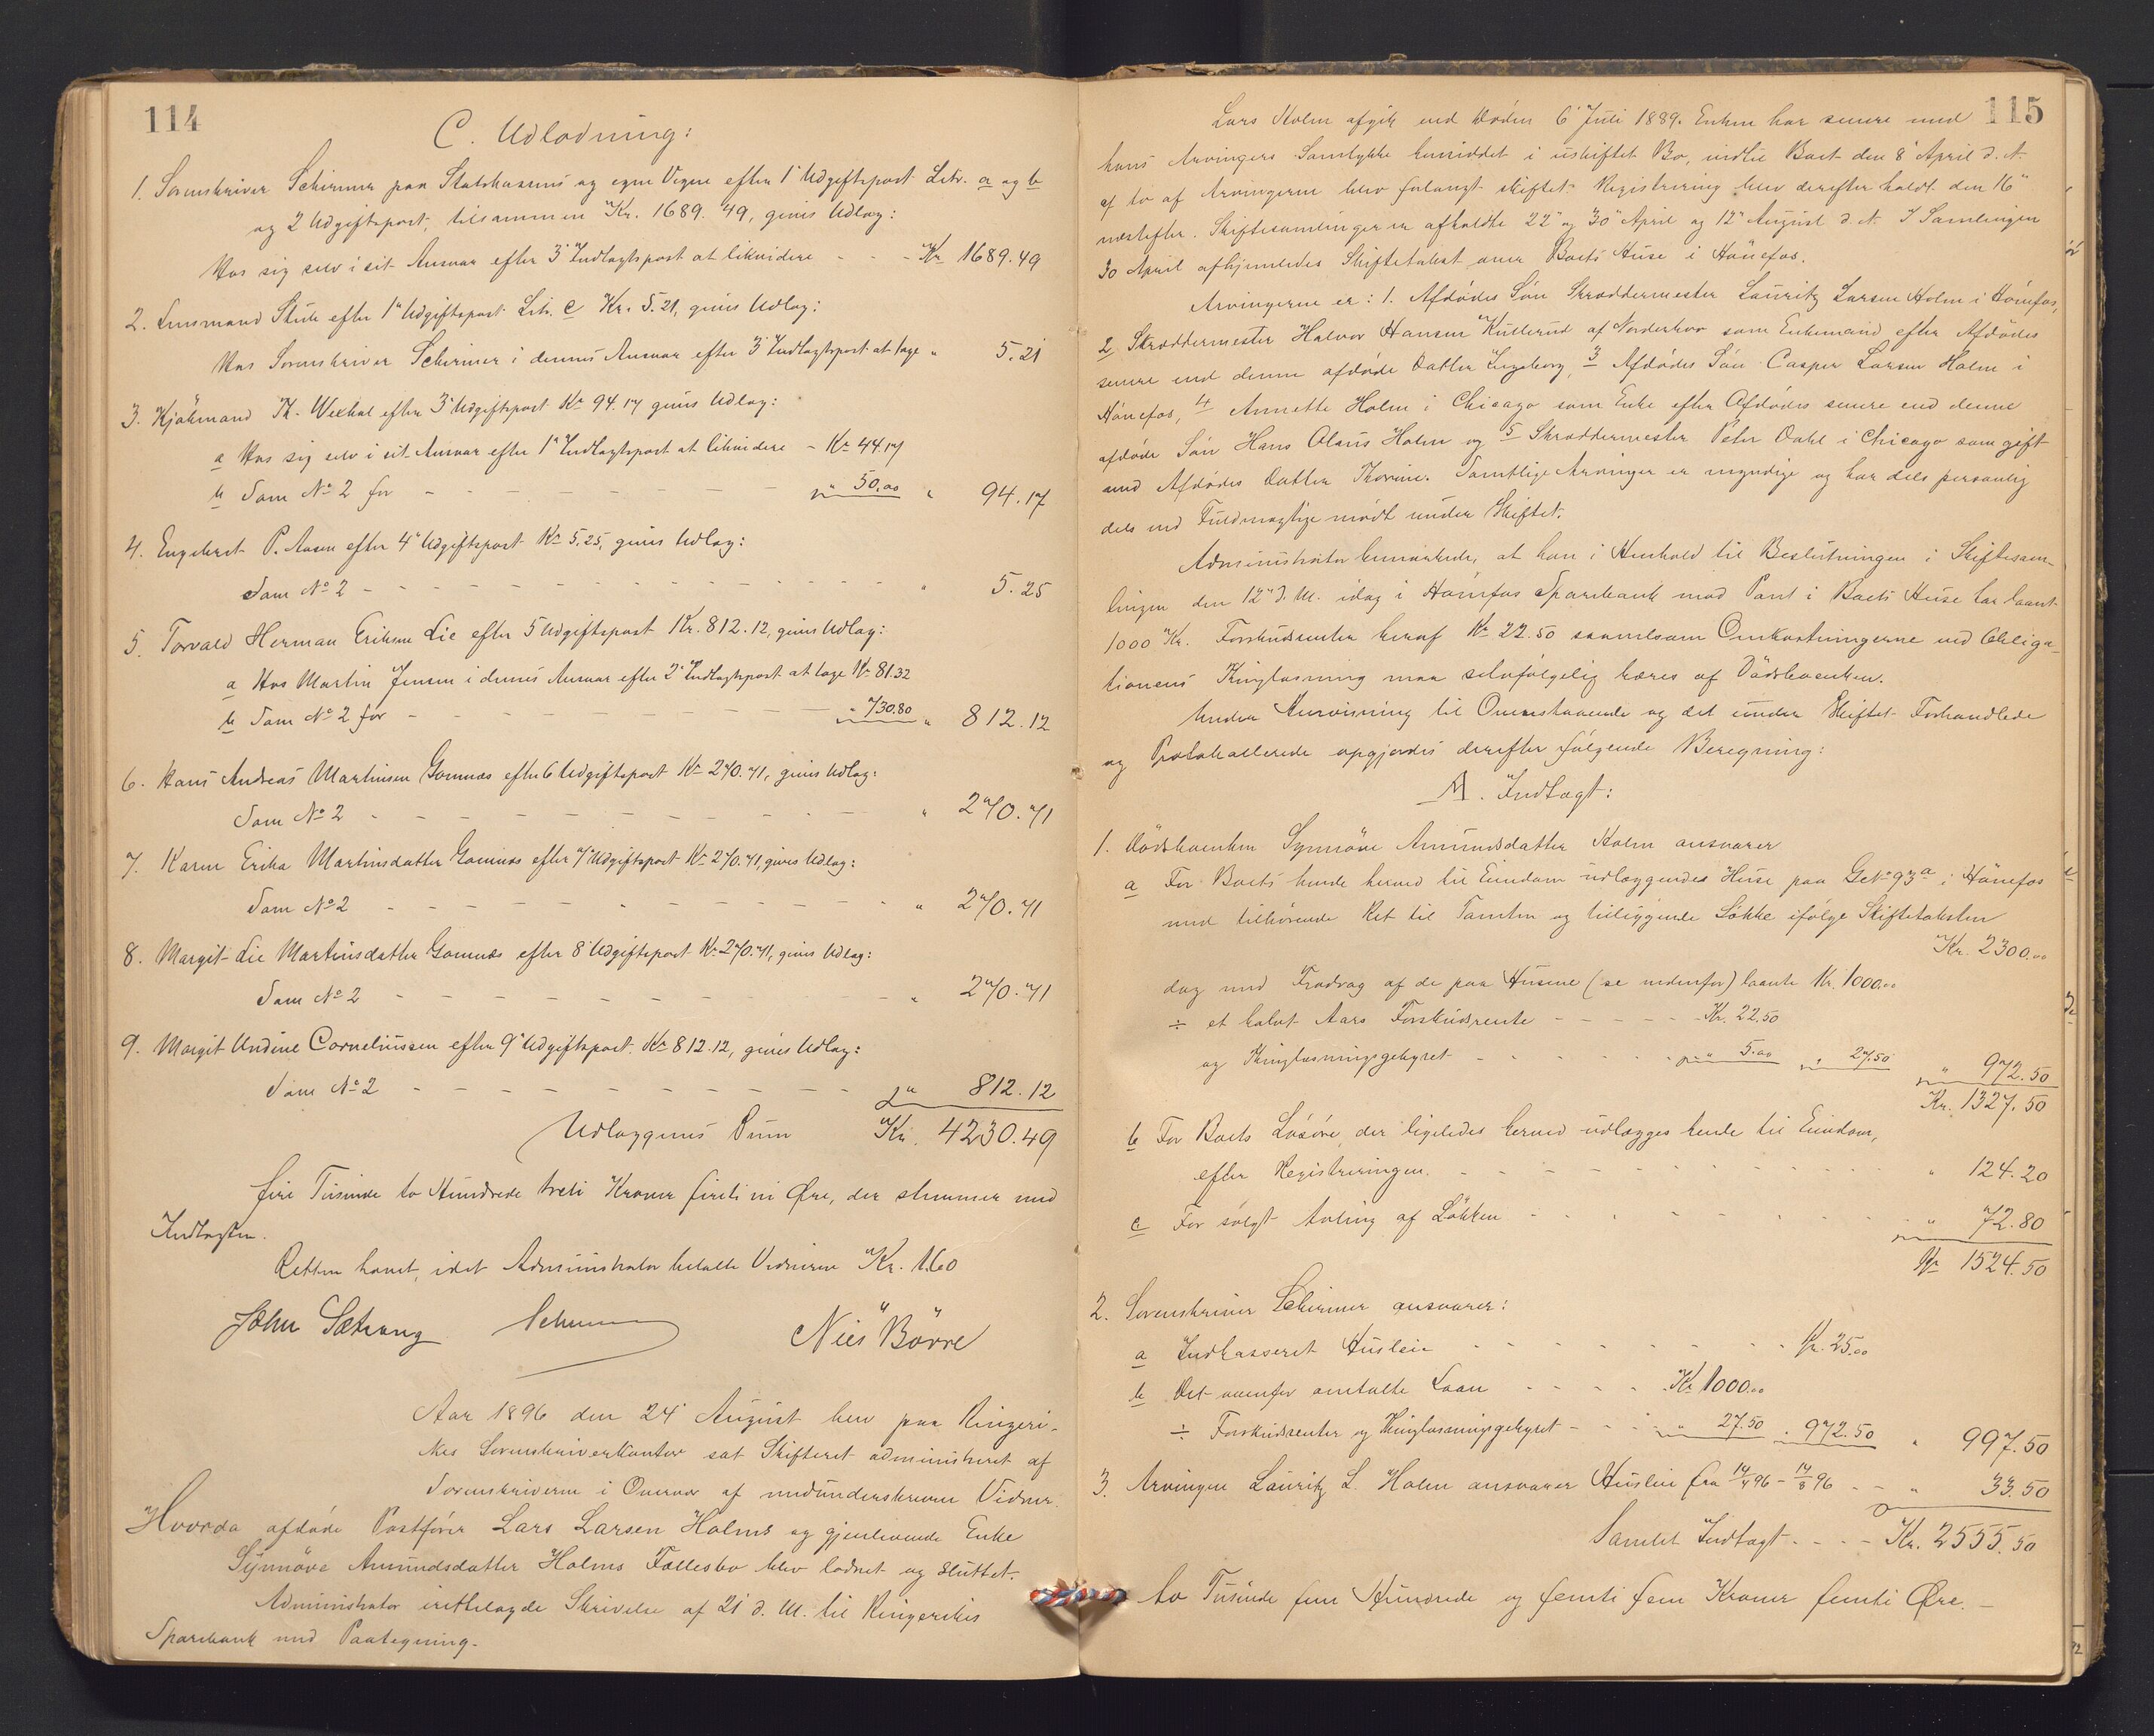 114
C. Udlodning:
1. Sorenskriver Schirmer paa Statskassens og egne Vegne efter 1ste Udgiftspost Litr. a og b
og 2 Udgiftspost, tilsammen Kr. 1689.49, gives Udlæg:
Hos sig selv i sit Ansvar efter 3' Indtægtspost at likvidere - - - Kr 1689.49
2. Lensmand Skule efter 1ste Udgiftspost Litr. c Kr. 5.21, gives Udlæg:
Hos Sorenskriver Schirmer i dennes Ansvar efter 3' Indtægtspost at tage " 5.21
3. Kjøbmand Th. Wexhal efter 3' Udgiftspost Kr 94.17 gives Udlæg:
a Hos sig selv i sit Ansvar efter 1' Indtægtspost at likvidere - Kr 44.17
b Som No 2 for - - - " 50.00 " 94.17
4. Engebret P. Aasen efter 4' Udgiftspost Kr 5.25, gives Udlæg:
Som No 2 - - - " 5.25
5. Torvald Herman Eriksen Lie efter 5 Udgiftspost Kr. 812.12, gives Udlæg:
a Hos Martin Jensen i dennes Ansvar efter 2' Indtægtspost at tage Kr 81.32
b Som No 2 for - - - " 730.80 " 812.12
6. Hans Andreas Martinsen Gomnæs efter 6 Udgiftspost Kr 270.71, gives Udlæg:
Som No 2 - - - " 270.71
7. Karen Erika Martinsdatter Gomnæs efter 7' Udgiftspost Kr 270.71, gives Udlæg:
Som No 2 - - - " 270.71
8. Margit Lie Martinsdatter Gomnæs efter 8' Udgiftspost Kr 270.71, gives Udlæg:
Som No 2 - - - " 270.71
9. Margit Undine Corneliussen efter 9' Udgiftspost Kr 812.12, gives Udlæg:
Som No 2 - - - " 812.12
Udlæggenes Sum Kr. 4230.49
fire Tusinde to Hundrede treti Kroner firti ni Øre, der stemmer med
Indtægten.
Retten hævet, idet Administrator betalte Vidnerne Kr. 1.60
John Sætrang Schirmer Nils Børre
Aar 1896 den 24' August blev paa Ringeri-
kes Sorenskriverkontor sat Skifteret administreret af
Sorenskriveren i Overvær af medunderskrevne Vidner.
Hvorda afdøde Postfører Lars Larsen Holms og gjenlevende Enke
Synnøve Amundsdatter Holms Fællesbo blev lodnet og sluttet.
Administrator irettelagde Skrivelse af 21 d. M. til Ringerikes
Sparebank med Paategning.
115
Lars Holm afgik ved Døden 6' Juli 1889. Enken har senere med
hans Arvingers Samtykke hensiddet i uskiftet Bo, indtil Boet den 8' April d. A.
af to af Arvingerne blev forlangt skiftet. Registrering blev derefter holdt den 16"
næstefter. Skiftesamlinger er afholdte 22" og 30" April og 12" August d. A. I Samlingen
30 April afhjemledes Skiftetakst over Boets Huse i Hønefos.
Arvingerne er: 1. Afdødes Søn Skræddermester Lauritz Larsen Holm i Hønefos,
2 Skræddermester Halvor Hansen Kullerud af Norderhov som Enkemand efter Afdødes
senere end denne afdøde Datter Ingeborg, 3 Afdødes Søn Casper Larsen Holm i
Hønefos, 4 Annette Holm i Chicago som Enke efter Afdødes senere end denne
afdøde Søn Hans Olaus Holm og 5 Skræddermester Peter Dahl i Chicago som gift
med Afdødes Datter Thorine. Samtlige Arvinger er myndige og har dels personlig
dels ved Fuldmægtige mødt under Skiftet.
Administrator bemærkede, at han i Henhold til Beslutningen i Skiftesam-
lingen den 12" d. M. idag i Hønefos Sparebank mod Pant i Boets Huse har laant
1000 Kr. Forskudsrenter heraf Kr 22.50 saavelsom Omkostningerne ved Obliga-
tionens Thinglæsning maa selvfølgelig bæres af Dødsboenken.
Under Henvisning til Ovenstaaende og det under Skiftet Forhandlede
og Protokollerede opgjordes derefter følgende Beregning:
A. Indtægt:
1. Dødsboenken Synnøve Amundsdatter Holm ansvarer
a For Boets hende herved til Eiendom udlæggendes Huse paa Ge. No 93a i Hønefos
med tilhørende Ret til Tomten og tilliggende Løkke ifølge Skiftetaksten
Kr. 2300.00
dog med Fradrag af de paa Husene (se nedenfor) laante Kr. 1000.00
÷ et halvt Aars Forskudsrente - - - Kr. 22.50
og Thinglæsningsgebyret - - - " 5.00 " 27.50 " 972.50
Kr. 1327.50
b For Boets Løsøre, der ligeledes herved udlægges hende til Eiendom,
efter Registreringen. - - - " 124.20
c For solgt Avling af Løkken - - - " 72.80
Kr 1524.50
2. Sorenskriver Schirmer ansvarer:
a Indkasseret Husleie - - - Kr. 25.00
b Det ovenfor omtalte Laan - - - Kr 1000.00
÷ Forskudsrenter og Thinglæsningsgebyret - - - " 27.50 " 972.50 " 997.50
3. Arvingen Lauritz L. Holm ansvarer Husleie fra 14/4 96 - 14/8 96 - - " 33.50
Samlet Indtægt - - - Kr. 2555.50
to Tusinde fem Hundrede og femti fem Kroner femti Øre. -